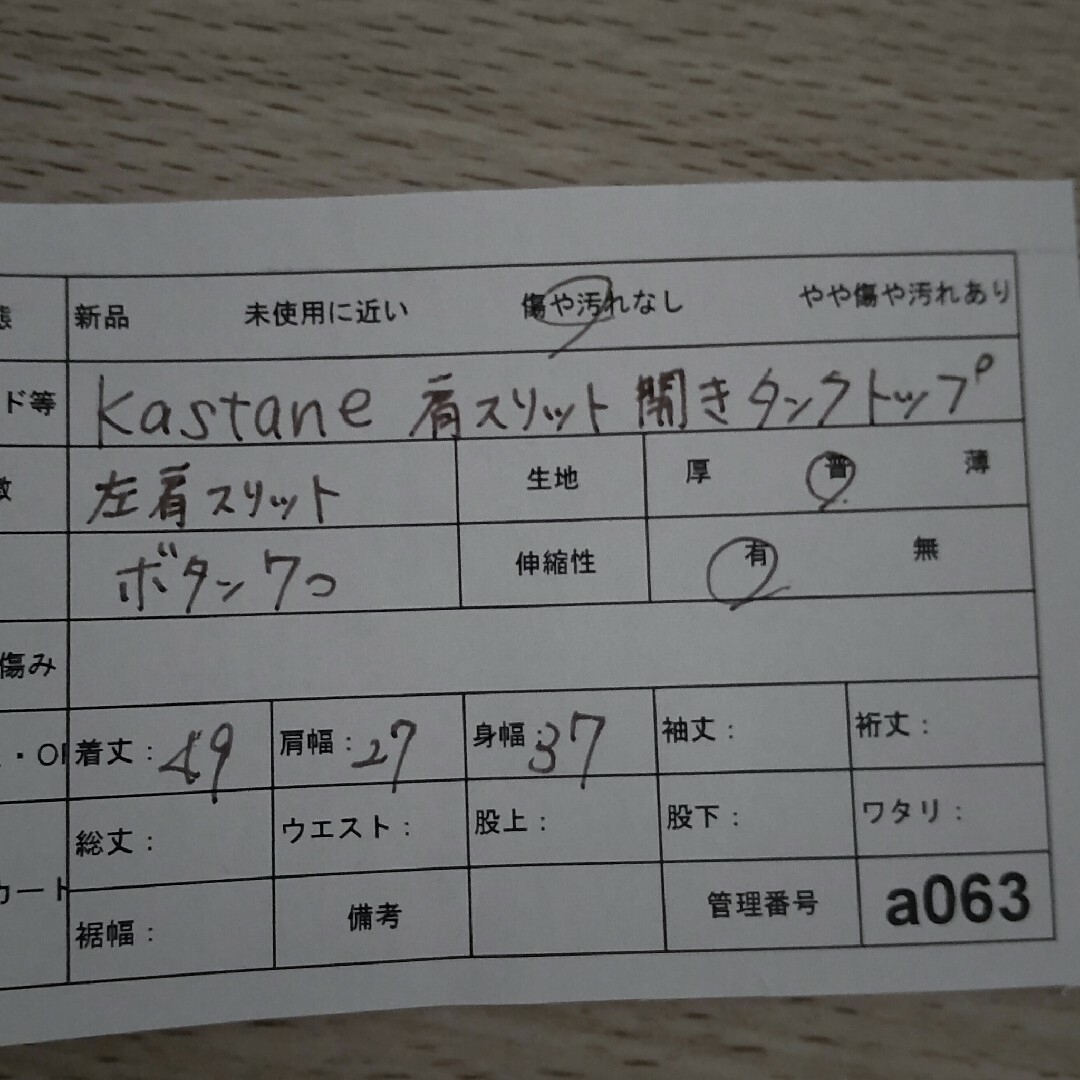 態 新品 未使用に近い 傷や汚れなし やや傷や汚れあり
ド等 kastane 肩スリット開きタンクトップ
徴 左肩スリット 生地 厚 普 薄
ボタン7つ 伸縮性 有 無
傷み
・OP 着丈: 49 肩幅: 27 身幅: 37 袖丈: 裄丈:
総丈: ウエスト: 股上: 股下: ワタリ:
カート
裾幅: 備考 管理番号 a063